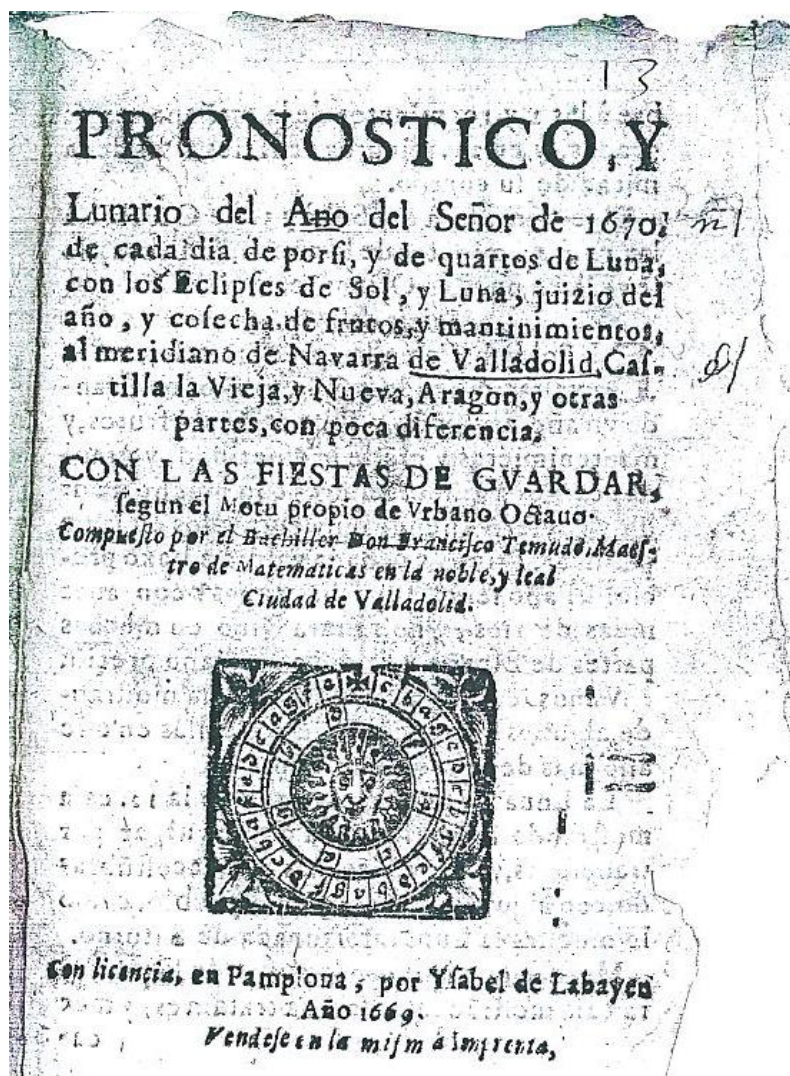 13
PRONOSTICO, Y
Lunario del Año del Señor de 1670.
de cada dia de porsi, y de quartos de Luna,
con los Eclipses de Sol, y Luna, juizio del
año, y cosecha de frutos, y mantinimientos,
al meridiano de Navarra de Valladolid, Cas-
tilla la Vieja, y Nueva, Aragon, y otras
partes, con poca diferencia,
CON LAS FIESTAS DE GVARDAR,
segun el Motu propio de Vrbano Octauo.
Compuesto por el Bachiller Don Francisco Temudo, Maes-
tro de Matematicas en la noble, y leal
Ciudad de Valladolid.
Con licencia, en Pamplona, por Ysabel de Labayen
Año 1669.
Vendese en la misma Imprenta,